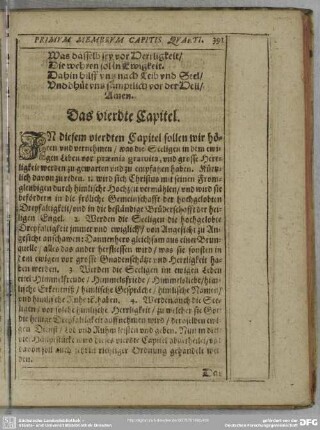 PRIMVM MEMBRVM CAPITIS QVARTI. 391
Was dasselb sey vor Herrligkeit/
Die wehren sol in Ewigkeit.
Dahin hilff vns nach Leib vnd Seel/
Vnd bhüt vns sämptlich vor der Hell/
Amen.
Das vierdte Capitel.
IN diesem vierdten Capitel sollen wir hö-
ren vnd vernehmen / was die Seeligen in dem ewi-
gen Leben vor præmia gratuita, vnd grosse Herr-
ligkeit werden zu gewarten vnd zu empfahen haben. Kürtz-
lich davon zu reden. 1. wird sich Christus mit seinen From-
gleubigen durch himlische Hochzeit vermählen/ vnd wird sie
befördern in die fröliche Gemeinschafft der hochgelobten
Dreyfaltigkeit/ vnd in die beständige Brüderschafft der hei-
ligen Engel. 2. Werden die Seeligen die hochgelobte
Dreyfaltigkeit immer vnd ewiglich/ von Angesicht zu An-
gesicht anschawen: Dannenhero gleichsam aus einer Brun-
quelle/ alles das ander herfliessen wird/ was sie sonsten in
dem ewigen vor grosse Gnadenschätze vnd Herrligkeit ha-
ben werden. 3. Werden die Seeligen im ewigen Leben
eitel Himmelfreude/ Himmelsfriede/ Himmelsliebe/ him-
lische Erkentniß/ himlische Gespräche/ himlische Namen/
vnd himlische Ruhe haben. 4. Werden auch die See-
ligen/ vor solche himlische Herrligkeit/ zu welcher sie Got
der heiligen Dreyfaltigkeit auffnehmen wird/ derselben ewi-
gen Dienst/ Lob vnd Ruhm leisten vnd geben. Nun in diese
vier Häuptstücke wird das vierdte Capitel abgetheilet/
davon soll auch richtiger Ordnung gehandelt wer-
den.
Das
gefördert von der
DFG